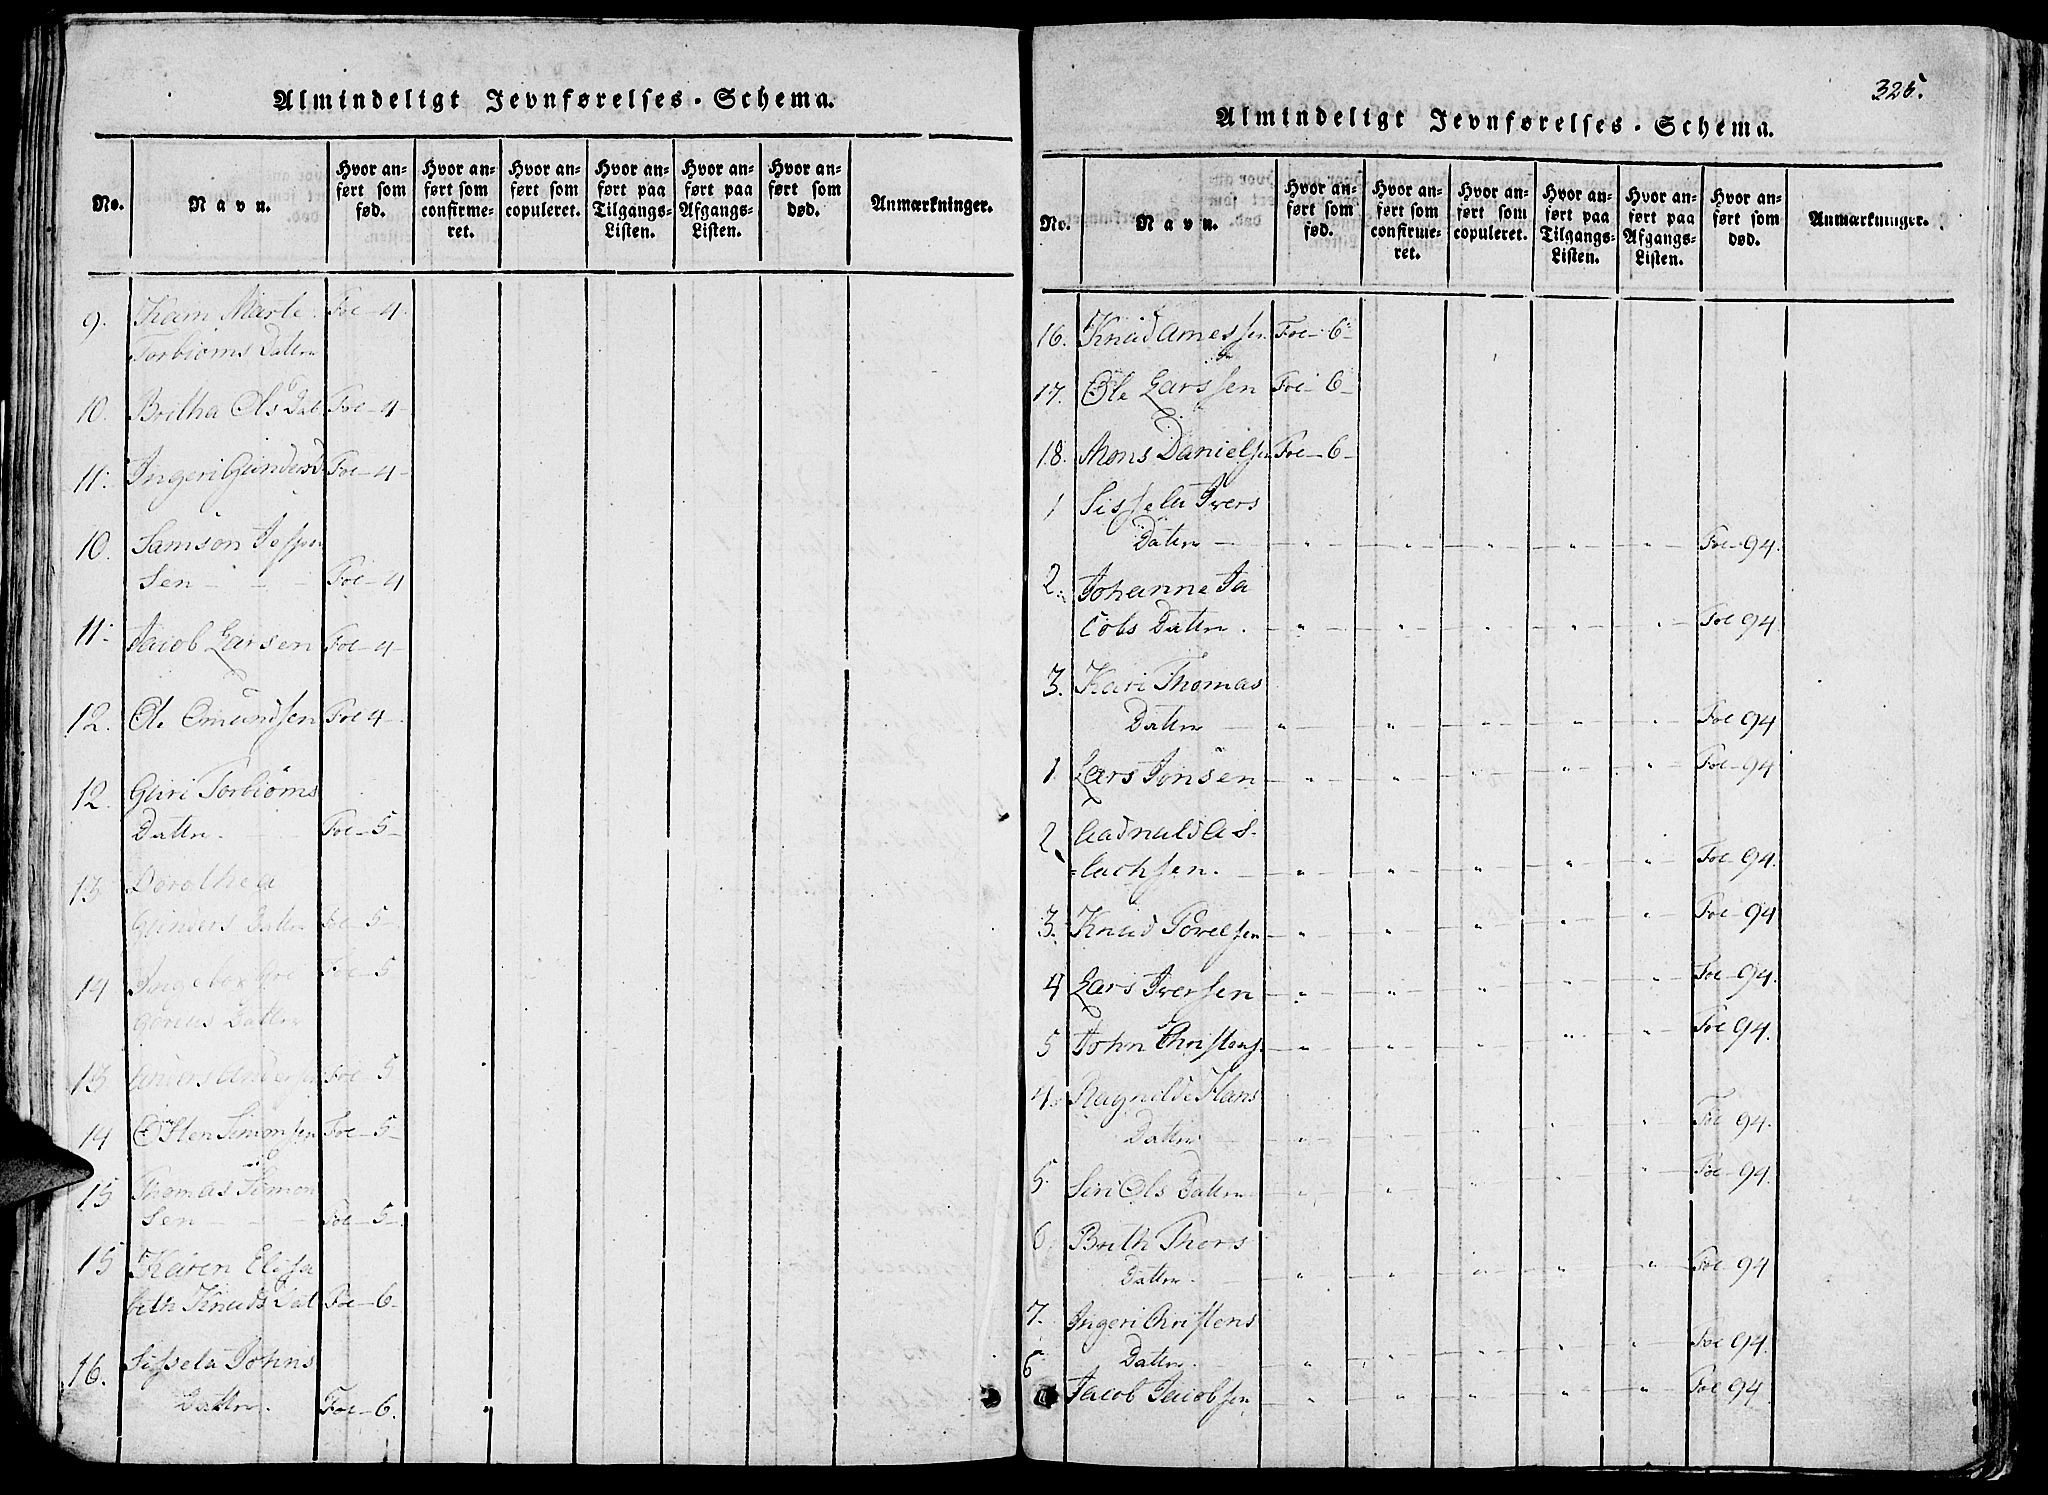 Almindeligt Jevnførelses-Schema.
No.
Navn.
Hvor an-
ført som
fød.
Hvor an-
ført som
confirme-
ret.
Hvor an-
ført som
copuleret.
Hvor an-
ført paa
Tilgangs-
Listen.
Hvor an-
ført paa
Afgangs-
Listen.
Hvor an-
ført som
død.
Anmærkninger.
9. Karn Marte Foe-4.
Torbiørns Datter
10. Britha Ols Dat Foe-4
11. Ingeri Gunders D Foe-4-
10. Samson
Sen - - - Foe-4
11. Jacob Larsen Foe-4-
12. Ole Omundsen Foe 4-
12. Guri Torbiørns
Datter. Foe-5-
13. Dorothea
Gunders Datter Foe-5-
14 Foe-5
Datter
13 Anders Andersen Foe-5
14 Osten Simonsen Foe-5-
15 Thomas Simon
Sen - - - Foe-5-
15 Karen Elisa
beth Knuds Dat Foe-6-
16. Sissela Johns
Datter. Foe-6.
325.
Almindeligt Jevnførelses-Schema.
No.
Navn.
Hvor an-
ført som
fød.
Hvor an-
ført som
confirme-
ret.
Hvor an-
ført som
copuleret.
Hvor an-
ført paa
Tilgangs-
Listen.
Hvor an-
ført paa
Afgangs-
Listen.
Hvor an-
ført som
død.
Anmærkninger.
16. Knud Arnessen Foe-6-
17. Ole Larssen Foe-6-
18. Mons Danielsen Foe-6-
1 Sissela Ivers
Datter - Foe-94.
2. Johanne Ja
cobs Datter. Foe 94
3. Kari Thomas
Datter Foe 94
1 Lars Jonsen Foe-94
2 Aadnuld As-
=lachsen. Foe 94.
3. Knud Povelsen Foe 94
4 Lars Iversen Foe-94.
5 John Christens. Foe 94.
4. Ragnilde Hans
Datter Foe 94.
5. Siri Ols Datter Foe-94.
6. Brith Thors
Datter. Foe 94
7. Ingeri Christens
Datter. Foe 94.
6 Jacob Jacobsen Foe 94.